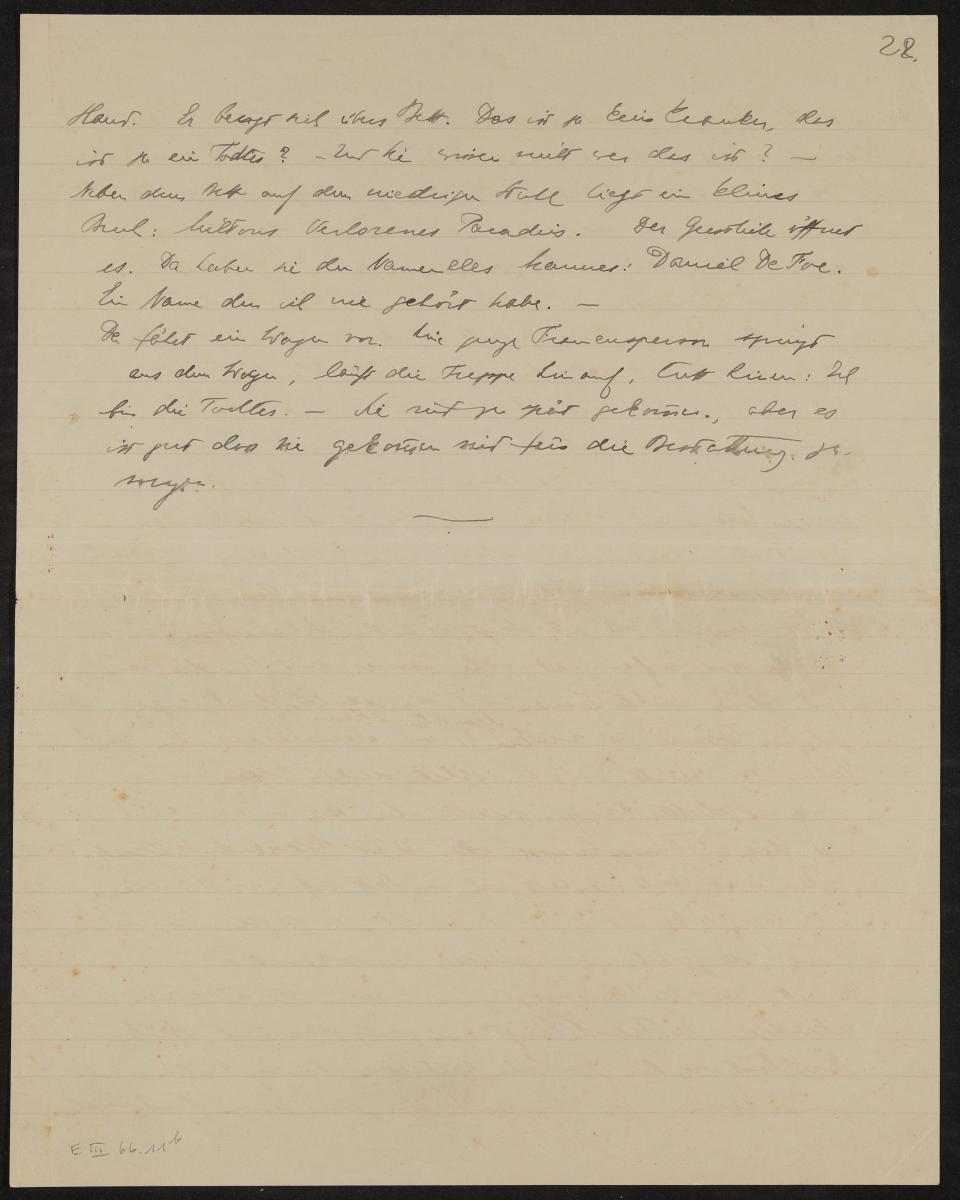 28.
Hand. Er beugt sich übers Bett. Das ist ja kein Kranker, das
ist ja ein Todter? – Und Sie wissen nicht wer das ist? –
Neben dem Bett auf dem niedrigen Stuhl liegt ein kleines
Buch: Miltons Verlorenes Paradies. Der Geistliche öffnet
es. Da haben sie den Namen des Mannes: Daniel De Foe.
Ein Name den ich nie gehört habe. –
Da fährt ein Wagen vor. Eine junge Frauensperson springt
aus dem Wagen, läuft die Treppe hinauf, tritt hinein: Ich
bin die Tochter. – Sie sind zu spät gekom̄en., aber es
ist gut dass Sie gekom̄en sind für die Bestattung zu
sorgen.
E III 66.11 b